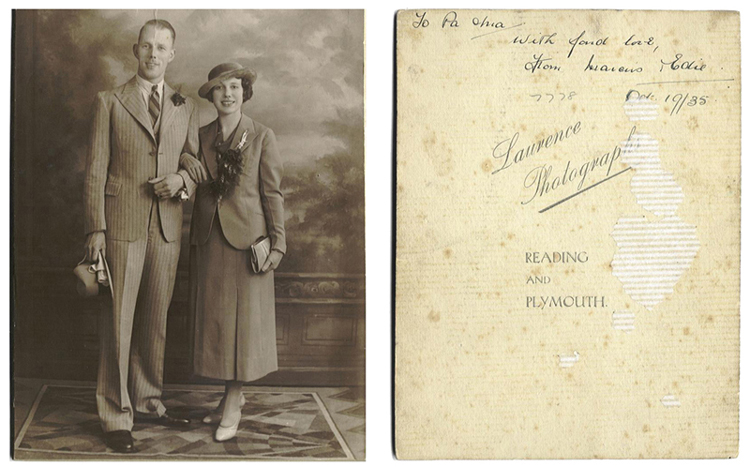 To Pa & Ma
With fond love,
From Marcus & Edie.
7778 Oct. 19/35
Laurence
Photographs
READING
AND
PLYMOUTH.